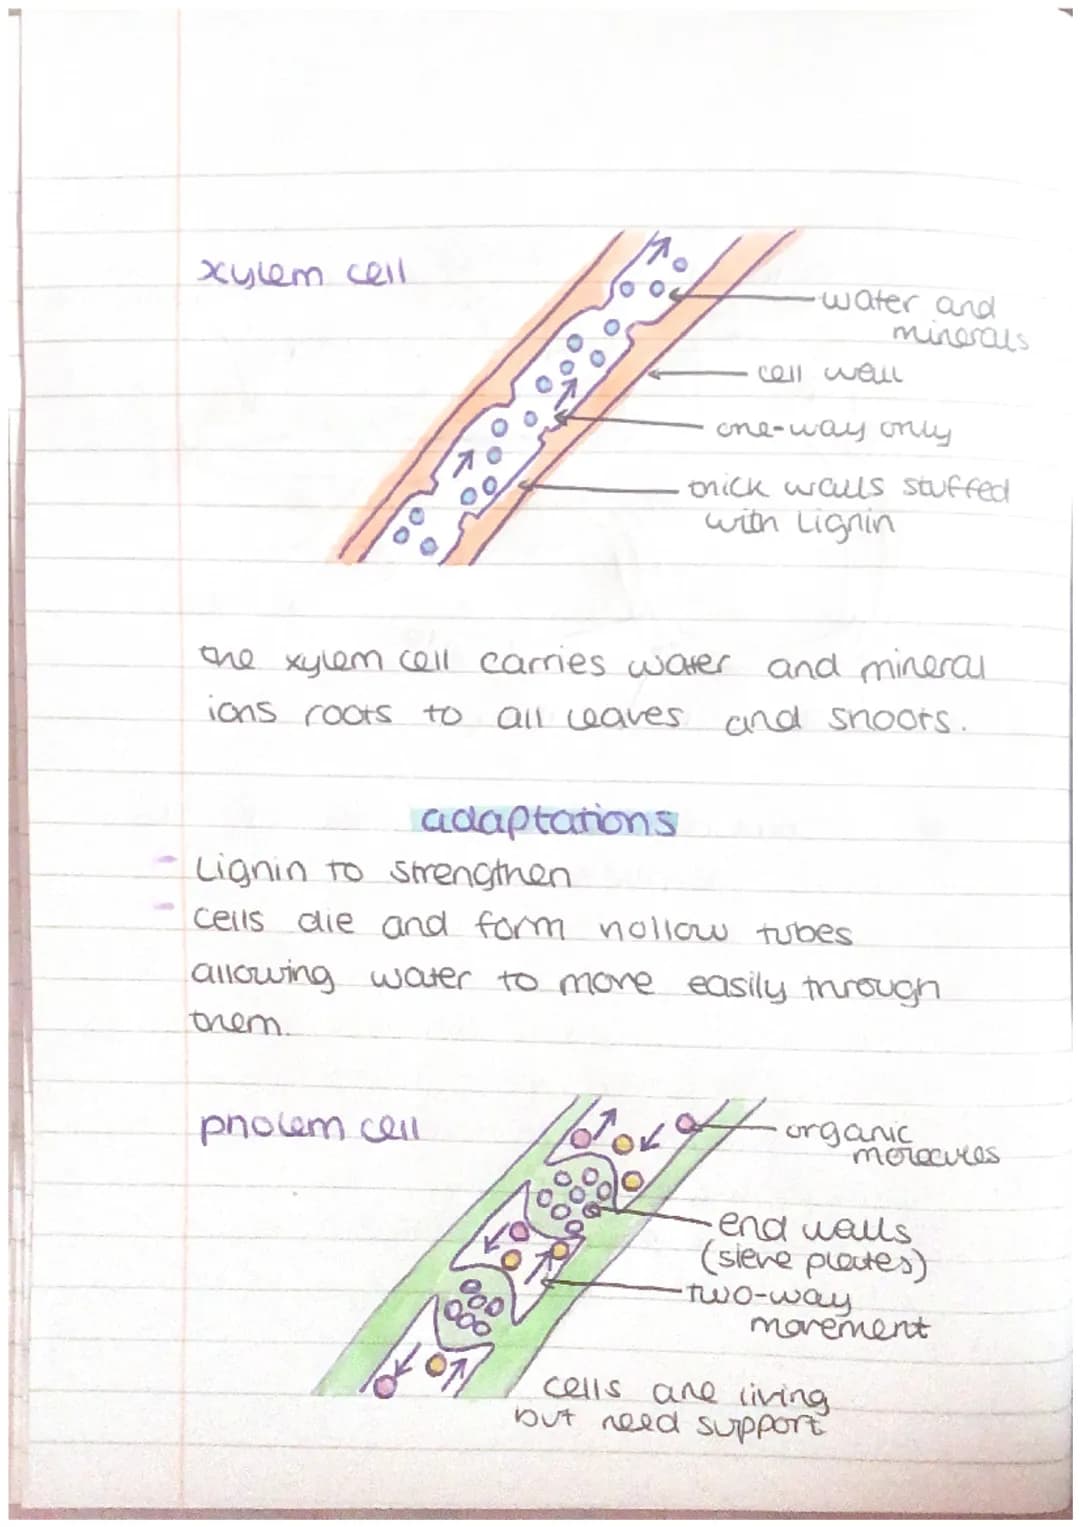 xylem cell
water and
minerals
cell wall
one-way only
thick walls stuffed
with Lignin
the xylem cell carries water and mineral
ions roots to all leaves and shoots.
adaptations
- Lignin to strengthen
- cells die and form hollow tubes
allowing water to move easily through
them.
pholem cell
organic
molecules
end walls
(sieve plates)
two-way
movement
cells are living
but need support